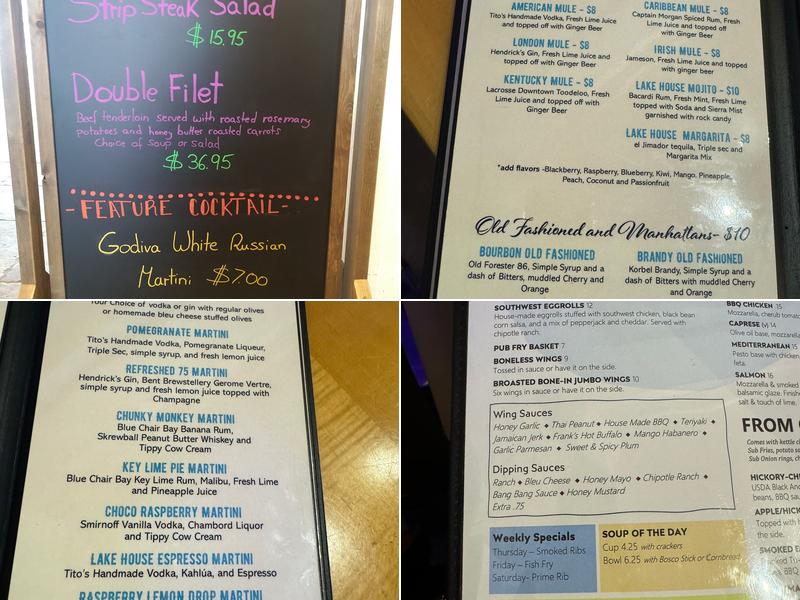 Strip Steak Salad
$15.95
Double Filet
Beef tenderloin served with roasted rosemary
potatoes and honey butter roasted carrots
Choice of soup or salad
$36.95
-FEATURE COCKTAIL-
Godiva White Russian
Martini $7.00
AMERICAN MULE - $8
Tito's Handmade Vodka, Fresh Lime Juice
and topped off with Ginger Beer
LONDON MULE - $8
Hendrick's Gin, Fresh Lime Juice and
topped off with Ginger Beer
KENTUCKY MULE - $8
Lacrosse Downtown Toodeloo, Fresh
Lime Juice and topped off with
Ginger Beer
CARIBBEAN MULE - $8
Captain Morgan Spiced Rum, Fresh
Lime Juice and topped off
with Ginger Beer
IRISH MULE - $8
Jameson, Fresh Lime Juice and topped
with ginger beer
LAKE HOUSE MOJITO - $10
Bacardi Rum, Fresh Mint, Fresh Lime
topped with Soda and Sierra Mist
garnished with rock candy
LAKE HOUSE MARGARITA - $8
el Jimador tequila, Triple sec and
Margarita Mix
*add flavors -Blackberry, Raspberry, Blueberry, Kiwi, Mango, Pineapple,
Peach, Coconut and Passionfruit
Old Fashioned and Manhattans- $10
BOURBON OLD FASHIONED
Old Forester 86, Simple Syrup and a
dash of Bitters, muddled Cherry and
Orange
BRANDY OLD FASHIONED
Korbel Brandy, Simple Syrup and a
dash of Bitters with muddled Cherry
and Orange
Your Choice of vodka or gin with regular olives
or homemade bleu cheese stuffed olives
POMEGRANATE MARTINI
Tito's Handmade Vodka, Pomegranate Liqueur,
Triple Sec, simple syrup, and fresh lemon juice
REFRESHED 75 MARTINI
Hendrick's Gin, Bent Brewstillery Gerome Vertre,
simple syrup and fresh lemon juice topped with
Champagne
CHUNKY MONKEY MARTINI
Blue Chair Bay Banana Rum,
Skrewball Peanut Butter Whiskey and
Tippy Cow Cream
KEY LIME PIE MARTINI
Blue Chair Bay Key Lime Rum, Malibu, Fresh Lime
and Pineapple Juice
CHOCO RASPBERRY MARTINI
Smirnoff Vanilla Vodka, Chambord Liquor
and Tippy Cow Cream
LAKE HOUSE ESPRESSO MARTINI
Tito's Handmade Vodka, Kahlúa, and Espresso
RASPBERRY LEMON DROP MARTINI
SOUTHWEST EGGROLLS 12
House-made eggrolls stuffed with southwest chicken, black bean
corn salsa, and a mix of pepperjack and cheddar. Served with
chipotle ranch.
PUB FRY BASKET 7
BONELESS WINGS 9
Tossed in sauce or have it on the side.
BROASTED BONE-IN JUMBO WINGS 10
Six wings in sauce or have it on the side.
Wing Sauces
Honey Garlic ◆ Thai Peanut ◆ House Made BBQ ◆ Teriyaki ◆
Jamaican Jerk ◆ Frank's Hot Buffalo ◆ Mango Habanero ◆
Garlic Parmesan ◆ Sweet & Spicy Plum
Dipping Sauces
Ranch ◆ Bleu Cheese ◆ Honey Mayo ◆ Chipotle Ranch ◆
Bang Bang Sauce ◆ Honey Mustard
Extra .75
Weekly Specials
Thursday – Smoked Ribs
Friday – Fish Fry
Saturday- Prime Rib
SOUP OF THE DAY
Cup 4.25 with crackers
Bowl 6.25 with Bosco Stick or Cornbread
BBQ CHICKEN 15
Mozzarella, cherub tomato
CAPRESE (v) 14
Olive oil base, mozzarella
MEDITERRANEAN 15
Pesto base with chicken
feta.
SALMON 16
Mozzarella & smoked
balsamic glaze. Finished
salt & touch of lime.
FROM
Comes with kettle
Sub Fries, potato
Sub Onion rings,
HICKORY-
USDA Black
beans, BBQ
APPLE/HICK
Topped with
the side.
SMOKED
Smoked Tri-
BBQ